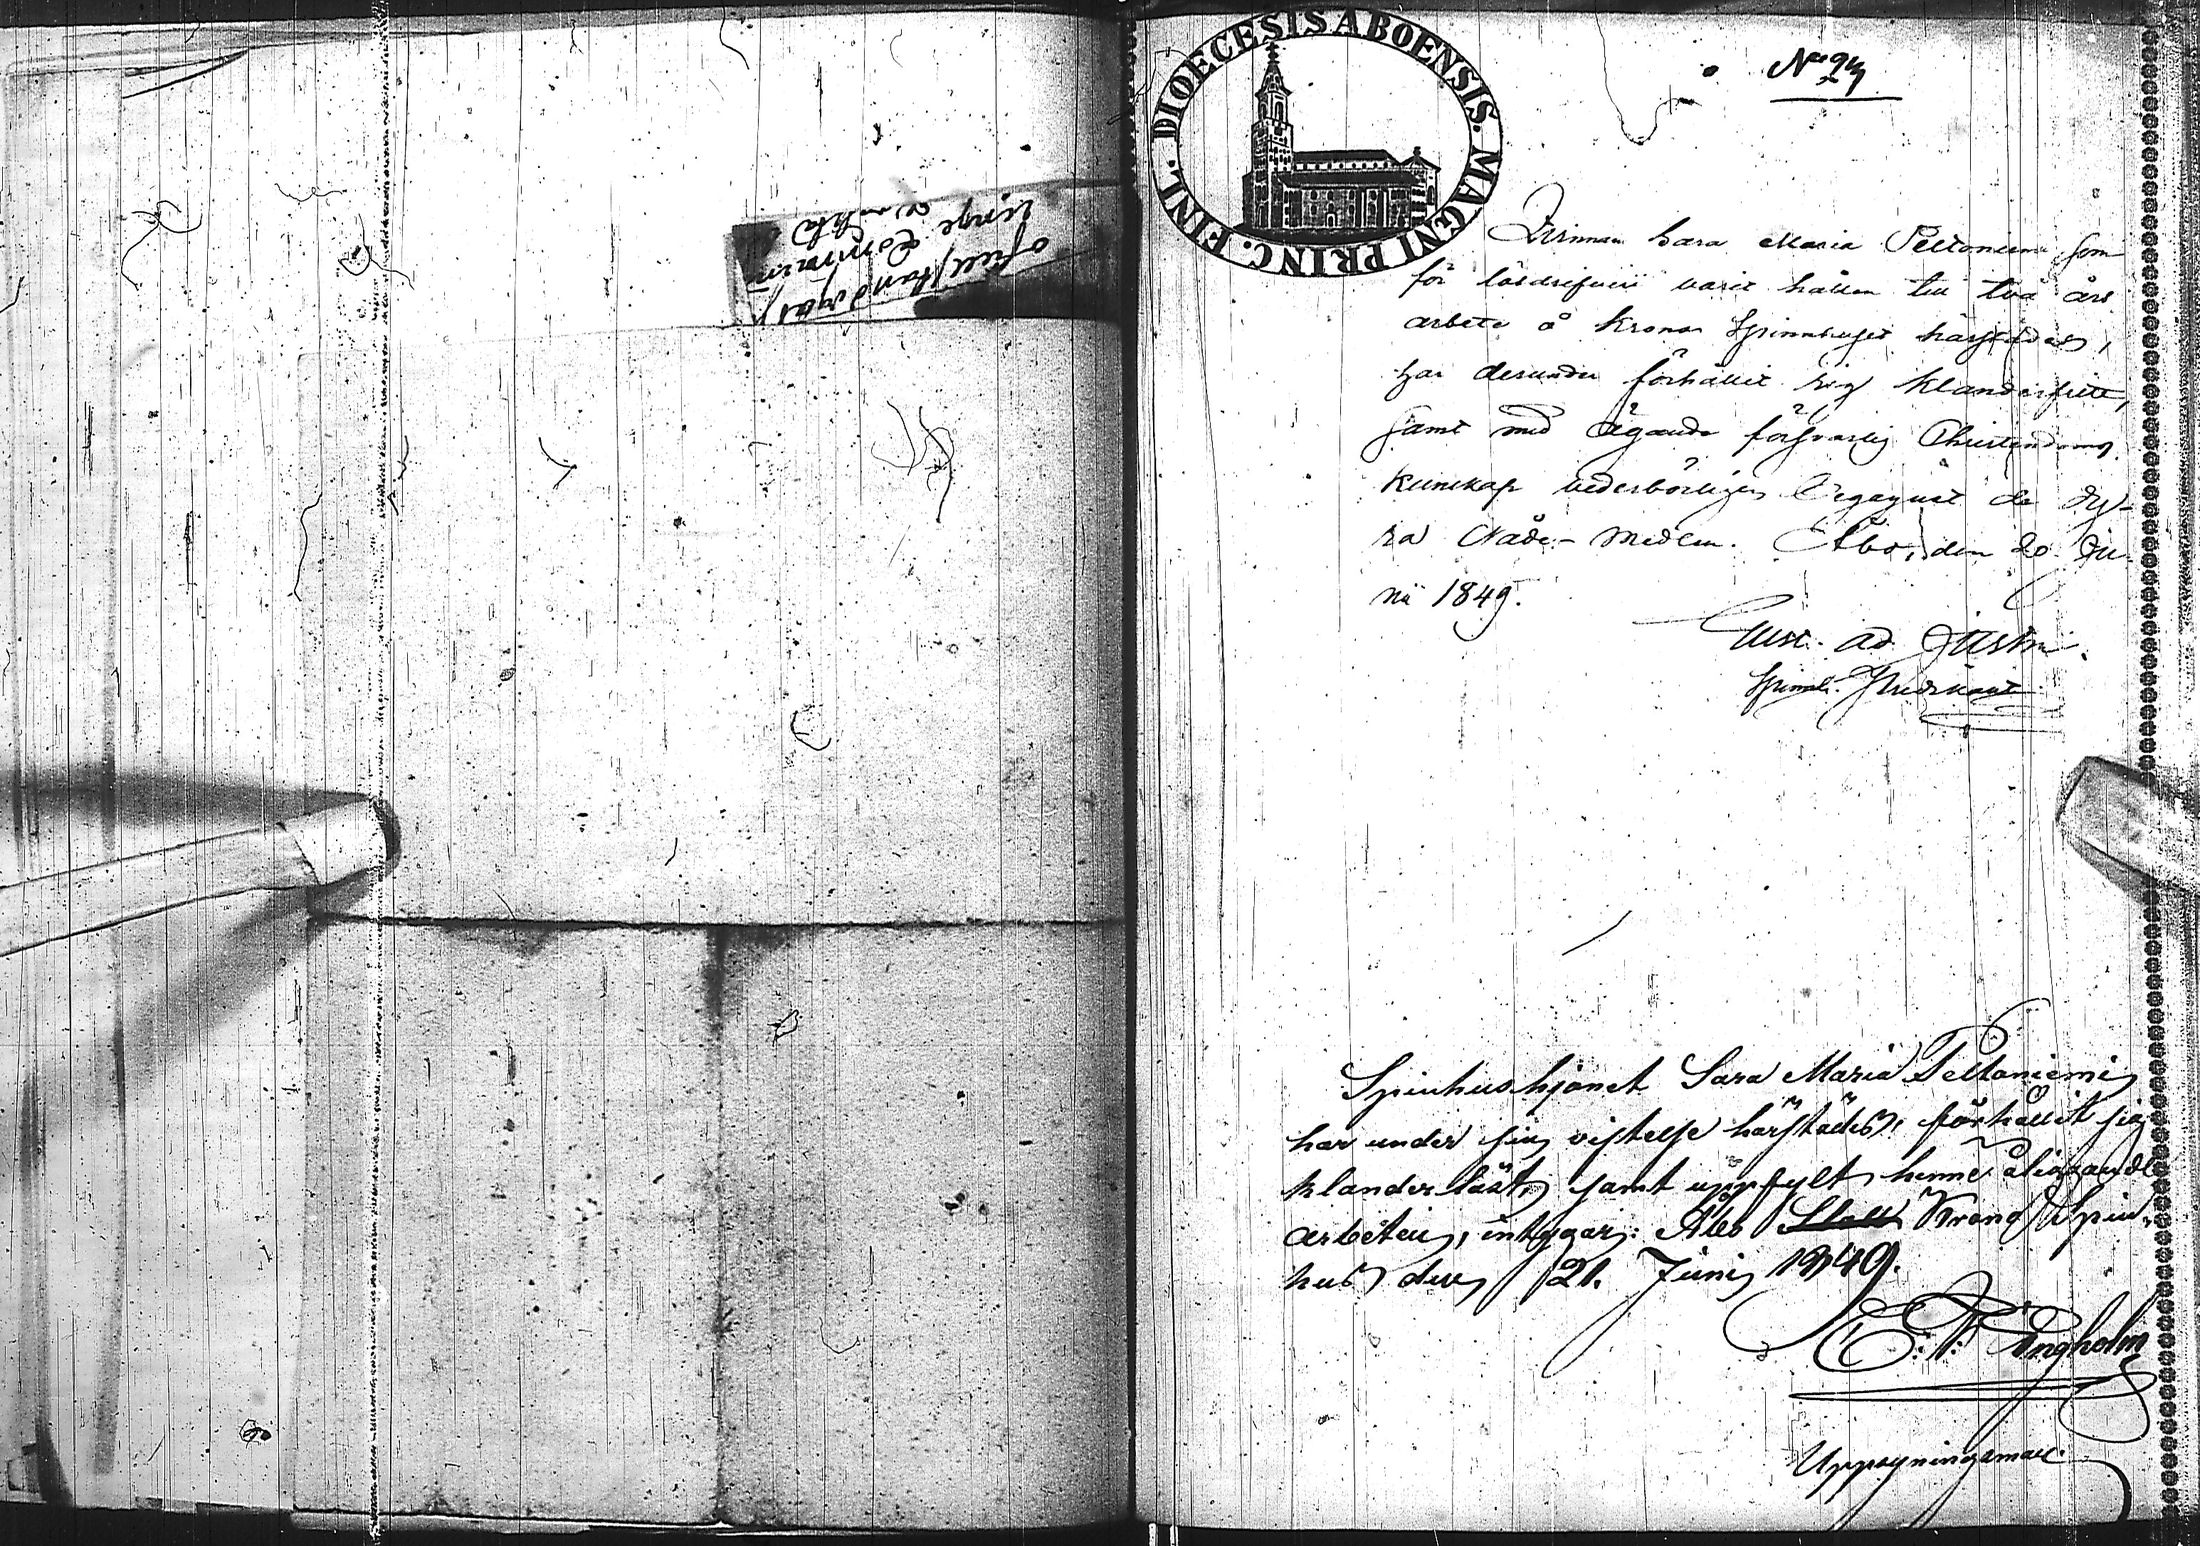 DIOECESIS ABOENSIS. MAGNI PRINC. FINL.
Qvinnan Sara Maria Peltoniemi som
för lösdrifveri varit hållen till två års
arbete å Krono Spinnhuset härstädes,
har derunder förhållit sig klanderfritt,
samt med ägande försvarlig Christendoms
kunskap vederbörligen begagnat de dy-
ra Nåde-medlen. Åbo, den 20 Ju-
nii 1849.
Gust. Ad.
Spinnh. Predikant
Spinhushjonet Sara Maria Peltoniemi
har under sin vistelse härstädes, förhållit sig
klanderlöst, samt uppfylt henne åliggande
arbeten, intygar: Åbo Krono Spin-
hus den 21. Junii 1849.
Uppsyningsman.